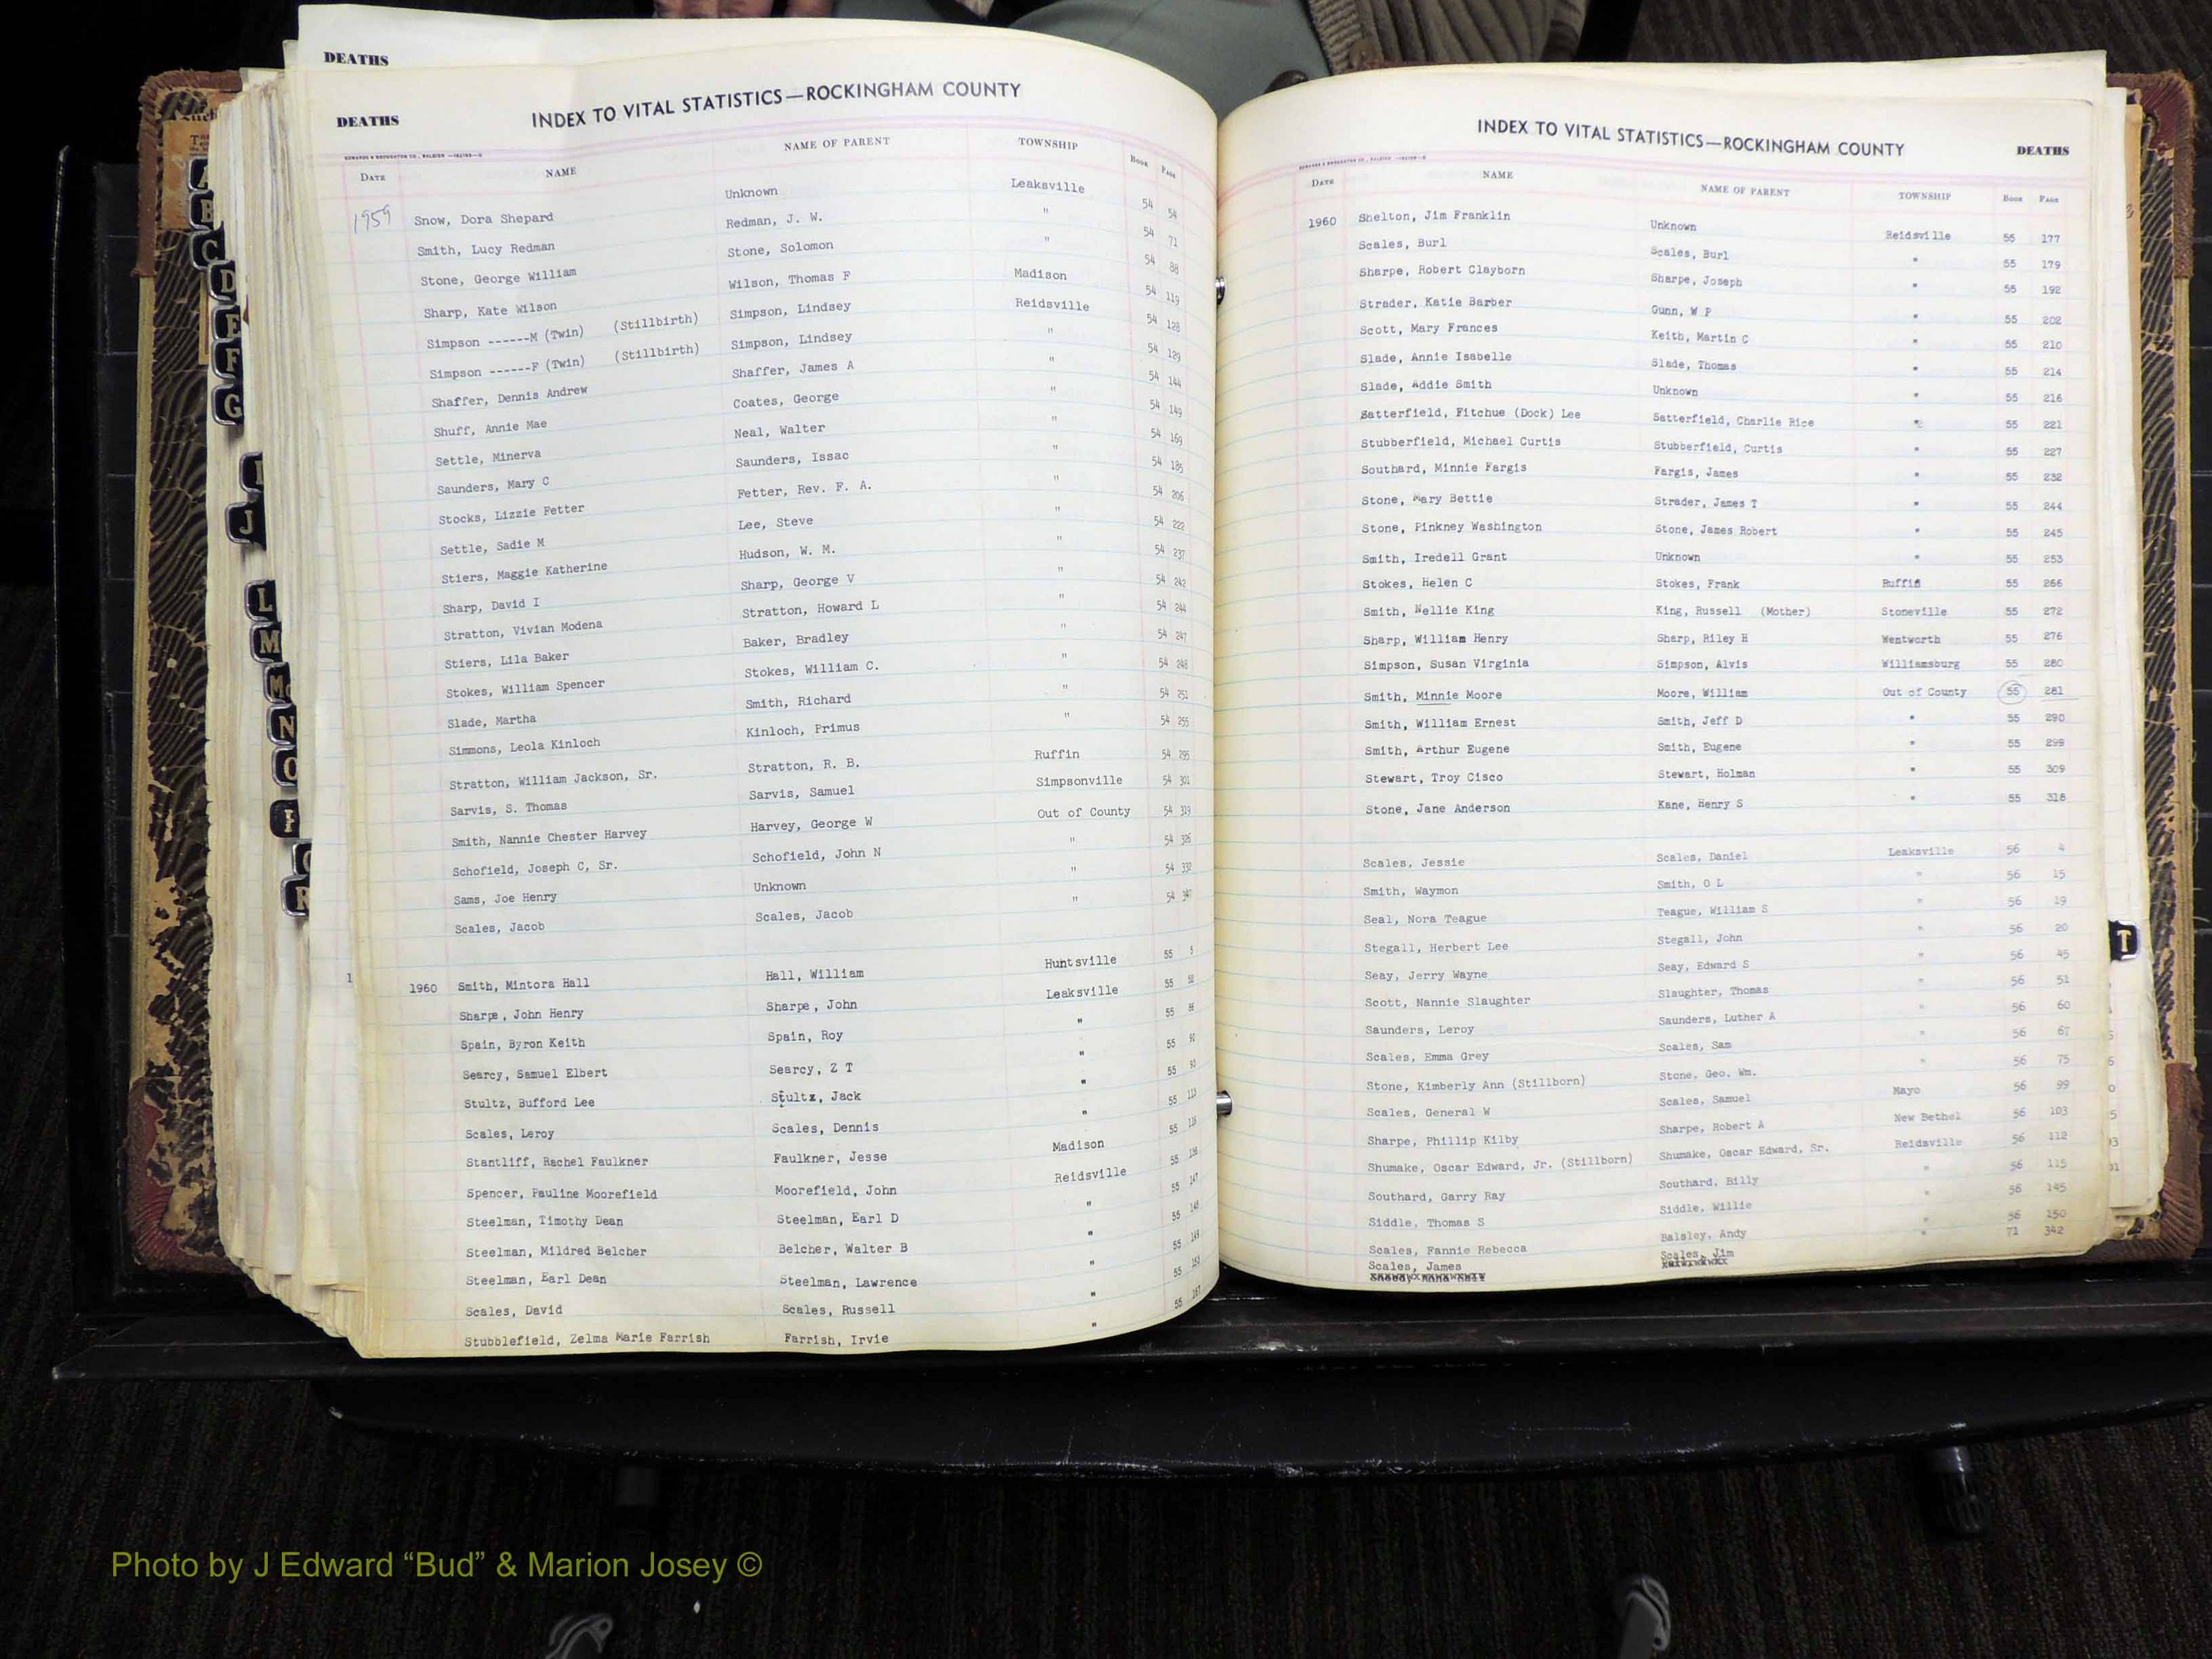 DEATHS
DEATHS
INDEX TO VITAL STATISTICS—ROCKINGHAM COUNTY
DATE NAME NAME OF PARENT TOWNSHIP Book PAGE
1959 Snow, Dora Shepard Unknown Leaksville 54 54
Smith, Lucy Redman Redman, J. W. " 54 71
Stone, George William Stone, Solomon " 54 88
Sharp, Kate Wilson Wilson, Thomas F Madison 54 119
Simpson ------M (Twin) (Stillbirth) Simpson, Lindsey Reidsville 54 128
Simpson ------F (Twin) (Stillbirth) Simpson, Lindsey " 54 129
Shaffer, Dennis Andrew Shaffer, James A " 54 144
Shuff, Annie Mae Coates, George " 54 149
Settle, Minerva Neal, Walter " 54 169
Saunders, Mary C Saunders, Issac " 54 185
Stocks, Lizzie Fetter Fetter, Rev. F. A. " 54 206
Settle, Sadie M Lee, Steve " 54 222
Stiers, Maggie Katherine Hudson, W. M. " 54 237
Sharp, David I Sharp, George V " 54 242
Stratton, Vivian Modena Stratton, Howard L " 54 244
Stiers, Lila Baker Baker, Bradley " 54 247
Stokes, William Spencer Stokes, William C. " 54 248
Slade, Martha Smith, Richard " 54 251
Simmons, Leola Kinloch Kinloch, Primus " 54 255
Stratton, William Jackson, Sr. Stratton, R. B. Ruffin 54 295
Sarvis, S. Thomas Sarvis, Samuel Simpsonville 54 301
Smith, Nannie Chester Harvey Harvey, George W Out of County 54 319
Schofield, Joseph C, Sr. Schofield, John N " 54 326
Sams, Joe Henry Unknown " 54 332
Scales, Jacob Scales, Jacob " 54 347
1 1960 Smith, Mintora Hall Hall, William Huntsville 55 5
Sharpe, John Henry Sharpe, John Leaksville 55 58
Spain, Byron Keith Spain, Roy " 55 86
Searcy, Samuel Elbert Searcy, Z T " 55 90
Stultz, Bufford Lee Stultz, Jack " 55 93
Scales, Leroy Scales, Dennis " 55 113
Stantliff, Rachel Faulkner Faulkner, Jesse Madison 55 118
Spencer, Pauline Moorefield Moorefield, John Reidsville 55 136
Steelman, Timothy Dean Steelman, Earl D " 55 147
Steelman, Mildred Belcher Belcher, Walter B " 55 148
Steelman, Earl Dean Steelman, Lawrence " 55 149
Scales, David Scales, Russell " 55 153
Stubblefield, Zelma Marie Farrish Farrish, Irvie " 55 167
INDEX TO VITAL STATISTICS—ROCKINGHAM COUNTY DEATHS
DATE NAME NAME OF PARENT TOWNSHIP Book PAGE
1960 Shelton, Jim Franklin Unknown Reidsville 55 177
Scales, Burl Scales, Burl " 55 179
Sharpe, Robert Clayborn Sharpe, Joseph " 55 192
Strader, Katie Barber Gunn, W P " 55 202
Scott, Mary Frances Keith, Martin C " 55 210
Slade, Annie Isabelle Slade, Thomas " 55 214
Slade, Addie Smith Unknown " 55 216
Satterfield, Fitchue (Dock) Lee Satterfield, Charlie Rice " 55 221
Stubberfield, Michael Curtis Stubberfield, Curtis " 55 227
Southard, Minnie Fargis Fargis, James " 55 232
Stone, Mary Bettie Strader, James T " 55 244
Stone, Pinkney Washington Stone, James Robert " 55 245
Smith, Iredell Grant Unknown " 55 253
Stokes, Helen C Stokes, Frank Ruffin 55 266
Smith, Nellie King King, Russell (Mother) Stoneville 55 272
Sharp, William Henry Sharp, Riley H Wentworth 55 276
Simpson, Susan Virginia Simpson, Alvis Williamsburg 55 280
Smith, Minnie Moore Moore, William Out of County 55 281
Smith, William Ernest Smith, Jeff D " 55 290
Smith, Arthur Eugene Smith, Eugene " 55 299
Stewart, Troy Cisco Stewart, Holman " 55 309
Stone, Jane Anderson Kane, Henry S " 55 318
Scales, Jessie Scales, Daniel Leaksville 56 4
Smith, Waymon Smith, O L " 56 15
Seal, Nora Teague Teague, William S " 56 19
Stegall, Herbert Lee Stegall, John " 56 20
Seay, Jerry Wayne Seay, Edward S " 56 45
Scott, Nannie Slaughter Slaughter, Thomas " 56 51
Saunders, Leroy Saunders, Luther A " 56 60
Scales, Emma Grey Scales, Sam " 56 67
Stone, Kimberly Ann (Stillborn) Stone, Geo. Wm. " 56 75
Scales, General W Scales, Samuel Mayo 56 99
Sharpe, Phillip Kilby Sharpe, Robert A New Bethel 56 103
Shumake, Oscar Edward, Jr. (Stillborn) Shumake, Oscar Edward, Sr. Reidsville 56 112
Southard, Garry Ray Southard, Billy " 56 115
Siddle, Thomas S Siddle, Willie " 56 145
Scales, Fannie Rebecca Balsley, Andy " 56 150
Scales, James Scales, Jim " 71 342
E
F
G
J
L
M
Mc
N
O
P
R
T
Photo by J Edward “Bud” & Marion Josey ©